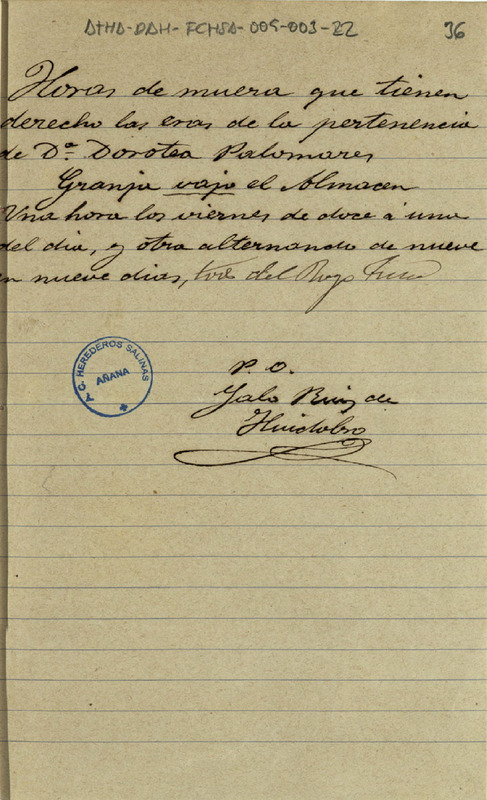 ATHA-DAH-FCHSA-009-003-22
36
Horas de muera que tienen
derecho las eras de la pertenencia
de Dª Dorotea Palomares
Granja vajo el Almacen
Una hora los viernes de doce á una
del dia, y otra alternando de nueve
en nueve dias, del Royo
P. O.
Ruiz de
Huidobro
T. G. HEREDEROS SALINAS
AÑANA